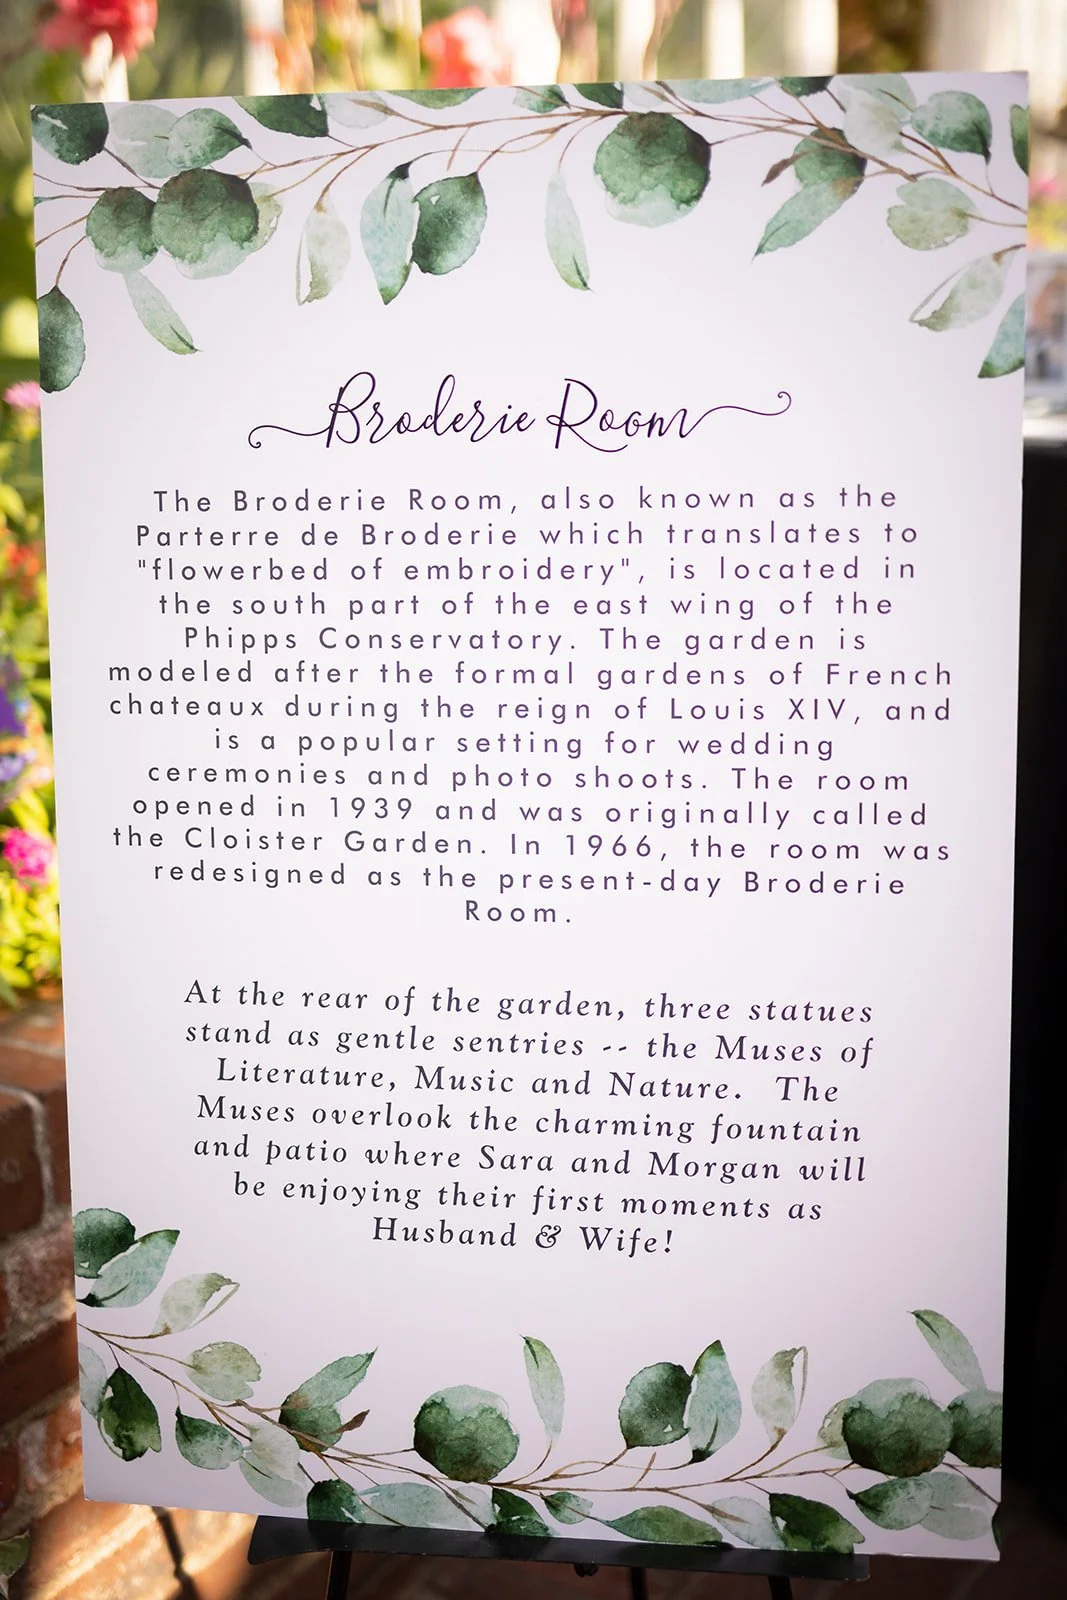 Broderie Room
The Broderie Room, also known as the
Parterre de Broderie which translates to
"flowerbed of embroidery", is located in
the south part of the east wing of the
Phipps Conservatory. The garden is
modeled after the formal gardens of French
chateaux during the reign of Louis XIV, and
is a popular setting for wedding
ceremonies and photo shoots. The room
opened in 1939 and was originally called
the Cloister Garden. In 1966, the room was
redesigned as the present-day Broderie
Room.
At the rear of the garden, three statues
stand as gentle sentries -- the Muses of
Literature, Music and Nature.  The
Muses overlook the charming fountain
and patio where Sara and Morgan will
be enjoying their first moments as
Husband & Wife!